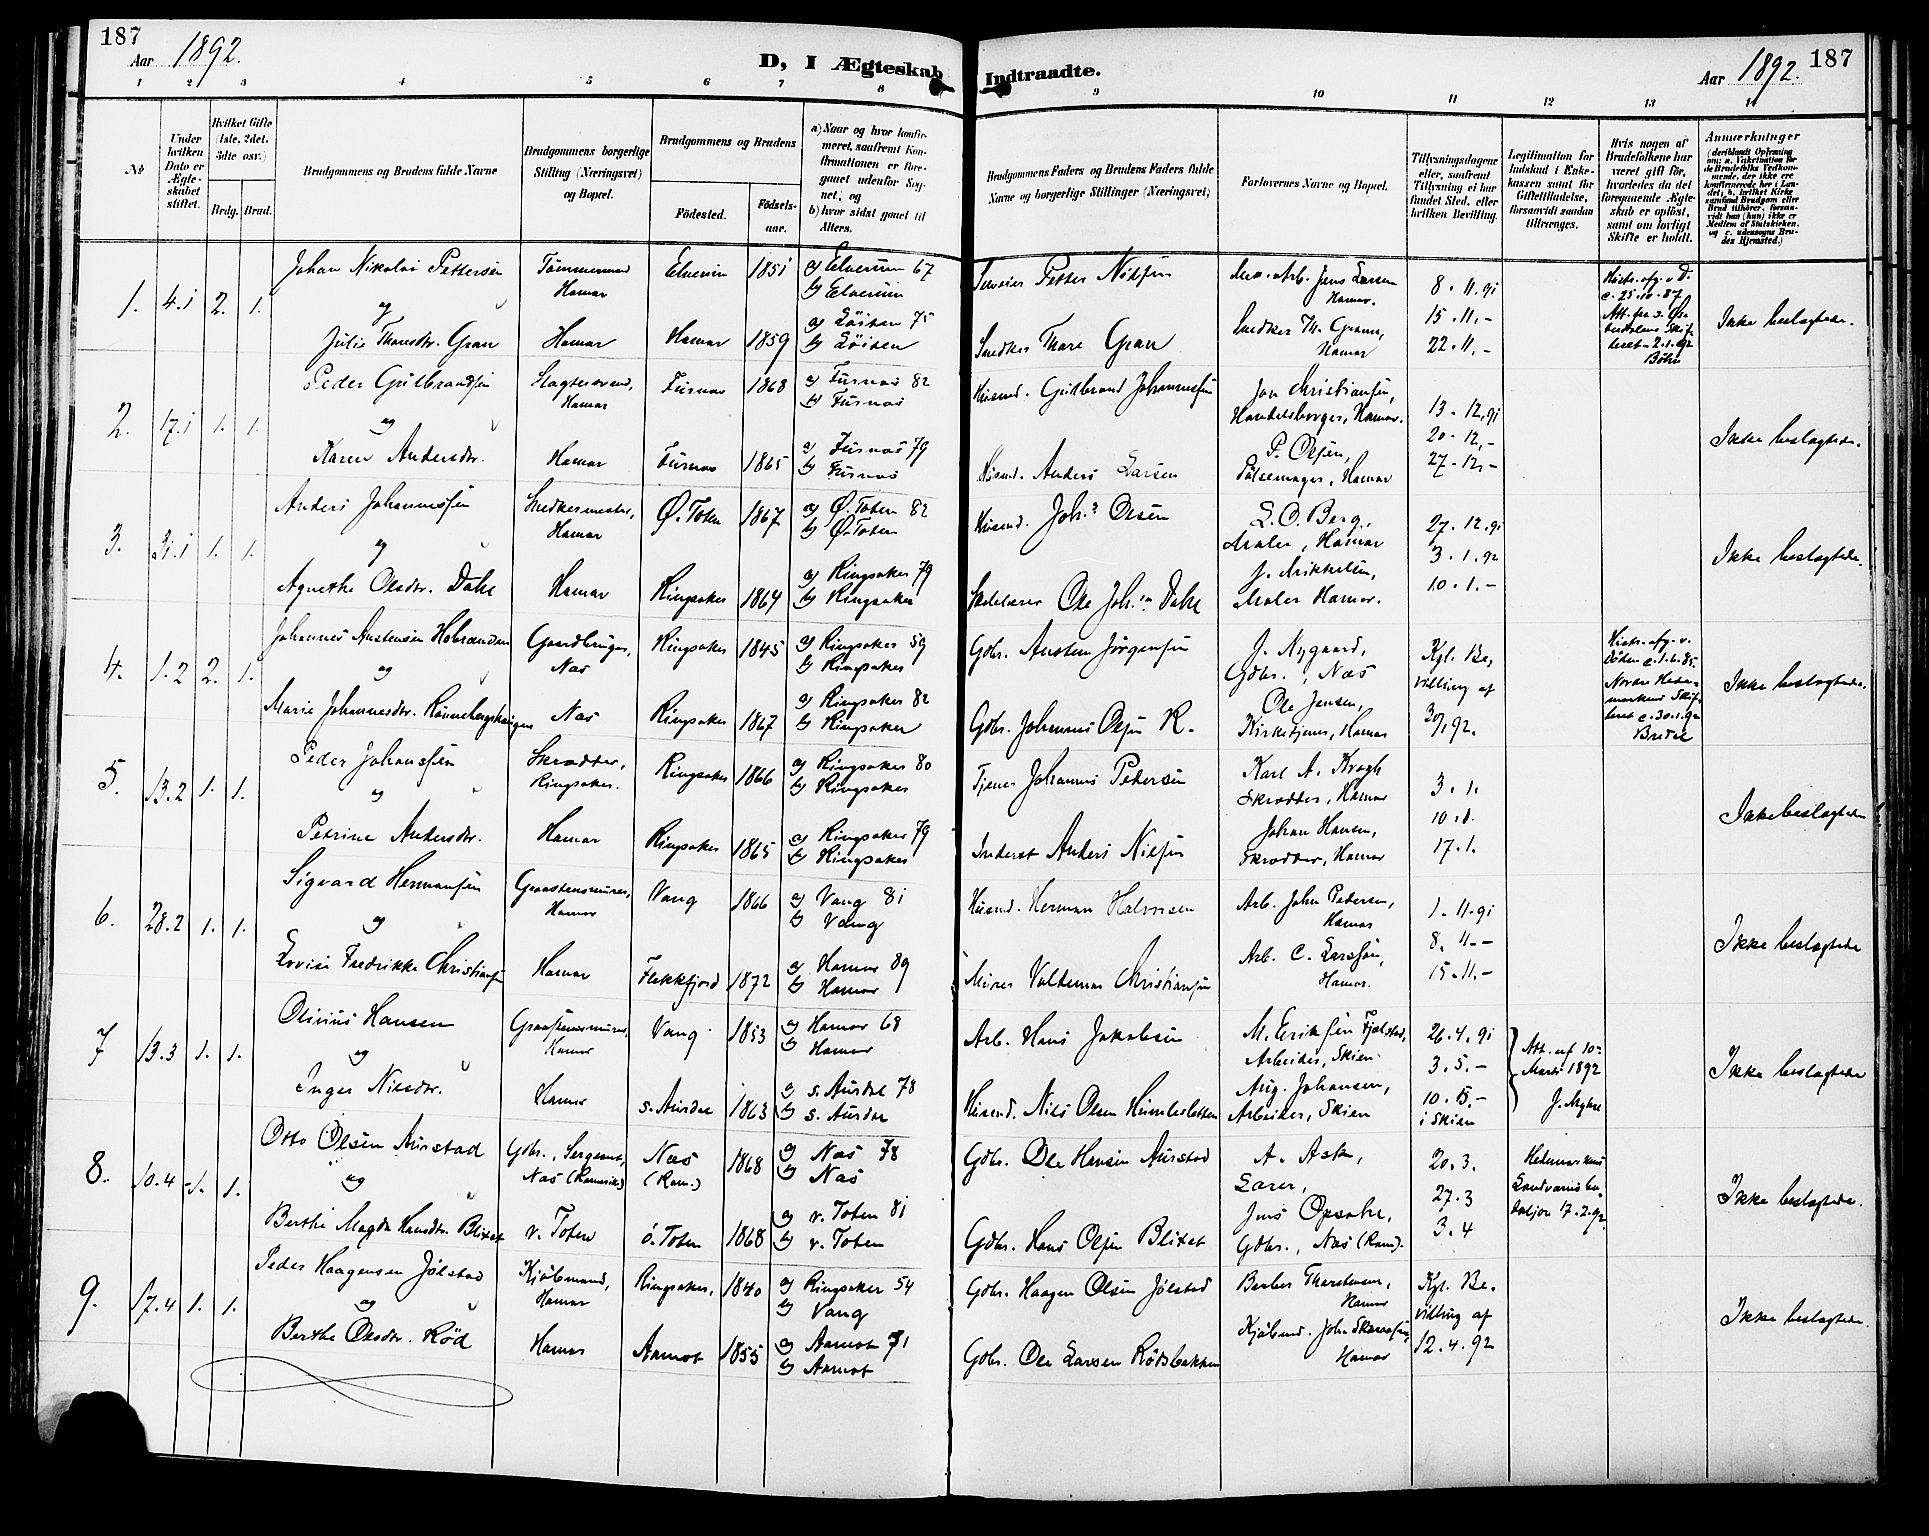 187
Aar 1892.
D, I Ægteskab Indtraadte.
Aar 1892. 187
1 2 3 4 5 6 7 8 9 10 11 12 13 14
No
Under hvilken Dato er Ægteskabet stiftet.
Hvilket Gifte (1ste, 2det, 3die osv.)
Brdg. Brud.
Brudgommens og Brudens fulde Navne
Brudgommens borgerlige Stilling (Næringsvei) og Bopæl.
Brudgommens og Brudens
Födested.
Födselsaar.
a) Naar og hvor konfirmeret, saafremt Konfirmationen er foregaaet udenfor Sognet, og
b) hvor sidst gaaet til Alters.
Brudgommens Faders og Brudens Faders fulde Navne og borgerlige Stillinger (Næringsvei)
Forlovernes Navne og Bopæl.
Tillysningsdagene eller, saafremt Tillysning ei har fundet Sted, efter hvilken Bevilling.
Legitimation for Indskud i Enkekassen samt for Giftetilladelse, forsaavidt saadan tiltrænges.
Hvis nogen af Brudefolkene har været gift för, hvorledes da det foregaaende Ægteskab er oplöst, samt om lovligt Skifte er holdt.
Anmærkninger
1. 4.1 2. 1.
Johan Nikolai Pettersen
og
Julie Thoresdtr. Gran
Tömmermand
Hamar
Hamar
Elverum 1851
Hamar 1859
a) Elverum 67
b) Elverum
a) Löiten 75
b) Löiten
Petter Nilsen
Snedker Thore Gran
Jens Larsen
Hamar.
Snedker Th. Grann,
Hamar
8. 11. 91
15. 11. -
22. 11. -
Ikke beslægtede.
2. 17.1 1. 1.
Peder Gulbrandsen
og
Karen Andersdtr.
Slagtersvend,
Hamar
Hamar
Furnæs 1868
Furnæs 1865
a) Furnæs 82
b) Furnæs
a) Furnæs 79
b) Furnæs
Husmd. Gudbrand Johannessen
Husmd. Anders Larsen
Jon Christiansen,
Handelsborger, Hamar.
P. Olsen,
Pölsemager, Hamar
13. 12. 91
20. 12. -
27. 12. -
Ikke beslægtede.
3. 31.1 1. 1.
Anders Johannessen
og
Agnethe Olsdtr. Dahl
Snedkermester,
Hamar
Hamar
Ø. Toten 1867
Ringsaker 1864
a) Ø. Toten 82
b) Ø. Toten
a) Ringsaker 79
b) Ringsaker
Husmd. Johs Olsen
Ole Joh.sen Dahl
L. O. Berg,
Maler, Hamar
J. Mikkelsen,
Maler Hamar.
27. 12. 91
3. 1. 92
10. 1. -
Ikke beslægtede.
4. 1.2 2. 1.
Johannes Austensen
og
Marie Johannesdtr.
Gaardbruger,
Næs
Næs
Ringsaker 1845
Ringsaker 1867
a) Ringsaker 59
b) Ringsaker
a) Ringsaker 82
b) Ringsaker
Gdbr. Austen Jörgensen
Gdbr. Johannes Olsen R.
J. Nygaard,
Gdbr., Næs
Ole Jensen,
Kirketjener, Hamar
Kgl. Bevilling af
30/1 92.
Ikke beslægtede.
5. 13.2 1. 1.
Peder Johansen
og
Petrine Andersdtr.
Skrædder,
Ringsaker.
Hamar
Ringsaker 1866
Ringsaker 1865
a) Ringsaker 80
b) Ringsaker
a) Ringsaker 79
b) Ringsaker
Tjener Johannes Pedersen
Inderst Anders Nilsen
Karl A. Krogh
Skrædder, Hamar
Johan Hansen,
Skrædder, Hamar
3. 1.
10. 1.
17. 1.
Ikke beslægtede
6. 28.2 1. 1.
Sigvard Hermansen
og
Lovise Fredrikke Christiansen
Graastensmurer,
Hamar
Hamar
Vang 1866
Flekkfjord 1872
a) Vang 81
b) Vang
a) Hamar 89
b) Hamar
Husmd. Herman Halvorsen
Murer Valdemar Christiansen
Arb. John Pedersen,
Hamar
Arb. C. Larssön,
Hamar.
1. 11. 91
8. 11. -
15. 11. -
Ikke beslægtede
7 13.3 1. 1.
Olinius Hansen
og
Inger Nilsdtr.
Graastensmurer,
Hamar
Hamar
Vang 1853
s. Aurdal 1863
a) Hamar 68
b) Hamar
a) s. Aurdal 78
b) s. Aurdal
Arb. Hans Jakobsen
Husmd. Nils Olsen
M. Eriksen Fjelstad,
Arbeider, Skien
Aug. Johansen,
Arbeider, Skien
26. 4. 91
3. 5. -
10. 5. -
i Skien
Att. af 10de
Marts 1892
Ikke beslægtede
8. 10.4 1. 1.
Otto Olsen Aurstad
og
Berthe Magda Hansdtr. Blixet
Gdbr., Sergeant,
Næs (Romerike)
v. Toten
Næs
(Rom.) 1868
ö. Toten 1868
a) Næs 78
b) Næs
a) v. Toten 81
b) v. Toten
Gdbr. Ole Hansen Aurstad
Gdbr. Hans Olsen Blixet
A. Ask,
Lærer,
Jens Opsahl,
Gdbr., Næs (Rom).
20. 3.
27. 3
3. 4
Hedemarkens
Landværnsbataljon 17. 2. 92
Ikke beslægtede.
9. 17.4 1. 1.
Peder Haagensen Jölstad
og
Berthe Olsdtr. Röd
Kjöbmand,
Hamar
Hamar
Ringsaker, 1840
Aamot 1855
a) Ringsaker 54
b) Vang
a) Aamot 71
b) Aamot
Gdbr. Haagen Olsen Jölstad
Gdbr. Ole Larsen Rödsbakken
Hamar
Kjöbmd.
Hamar
Kgl. Bevilling af
12. 4. 92
Ikke beslægtede.